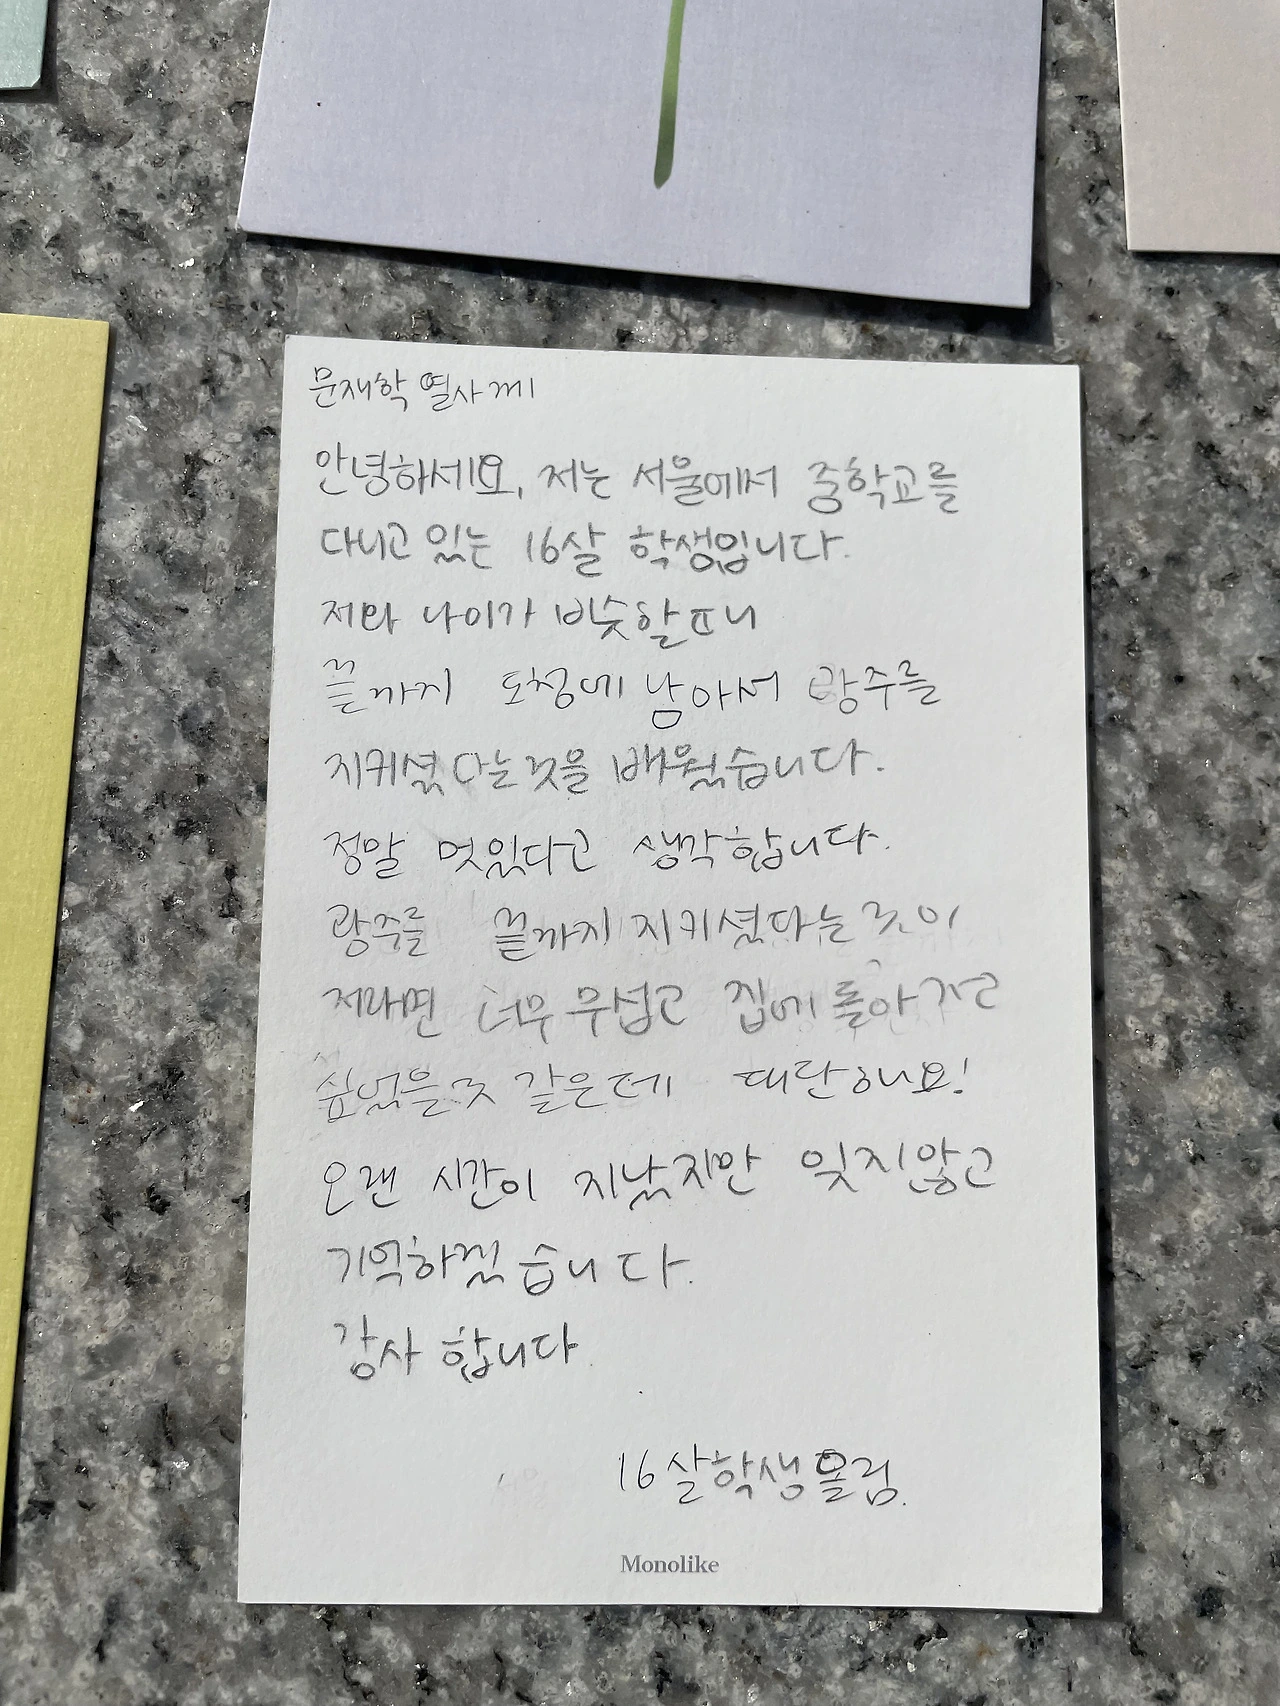 문재학 열사께
안녕하세요, 저는 서울에서 중학교를
다니고 있는 16살 학생입니다.
저와 나이가 비슷할ㅍ니
끝까지 도청에 남아서 광주를
지키셨다는것을 배웠습니다.
정말 멋있다고 생각합니다.
광주를 끝까지 지키셨다는것이
저라면 너무 무섭고 집에 돌아가고
싶었을것 같은데 대단해요!
오랜 시간이 지났지만 잊지않고
기억하겠습니다.
감사합니다
16살학생올림.
Monolike